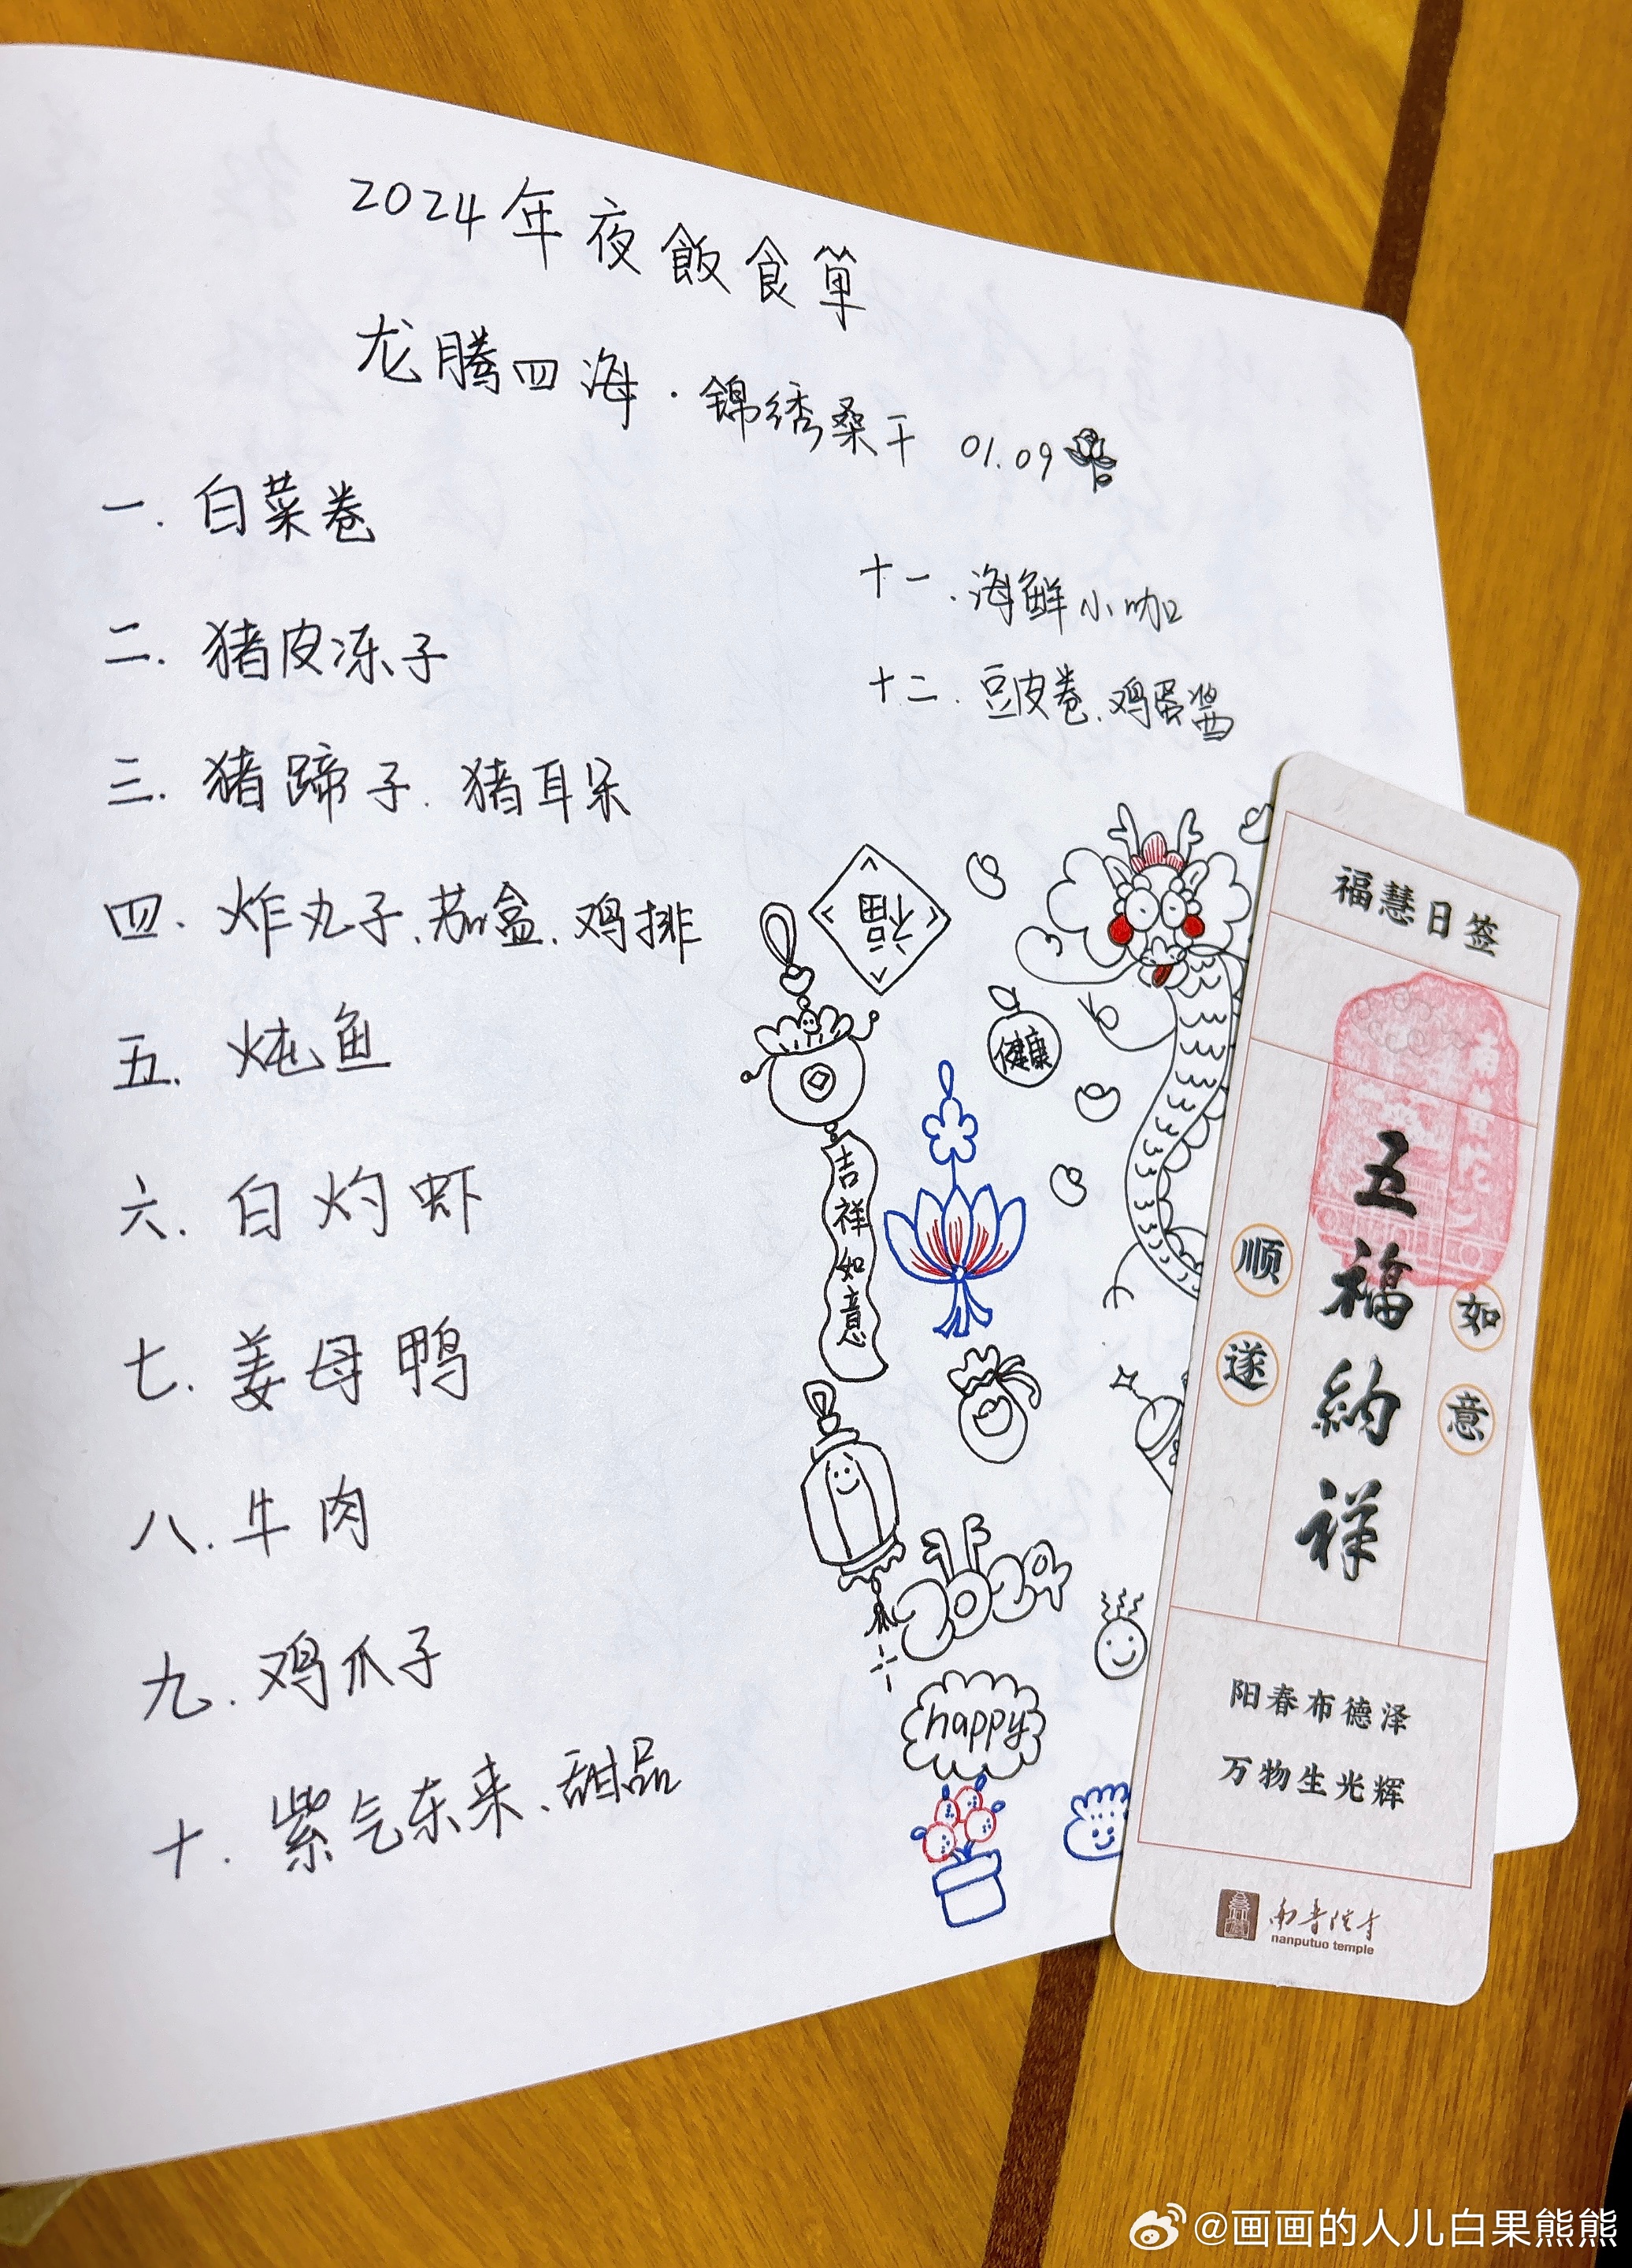 2024年夜飯食單
龙腾四海·锦绣桑干 01.09
一.白菜卷
二.猪皮冻子
三.猪蹄子.猪耳朵
四.炸丸子.茄盒.鸡排
五.炖鱼
六.白灼虾
七.姜母鸭
八.牛肉
九.鸡爪子
十.紫气东来、甜品
十一.海鲜小咖
十二.豆皮卷.鸡蛋酱
福
健康
吉祥如意
2024
happy
福慧日签
五福纳祥
顺遂
如意
阳春布德泽
万物生光辉
南普陀寺
nanputuo temple
@画画的人儿白果熊熊